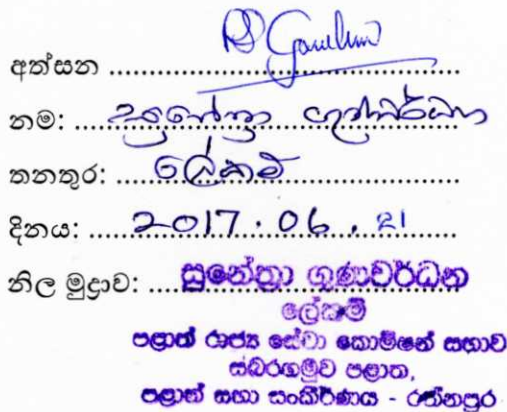 අත්සන ..........................................
නම: සුනේත්‍රා ගුණවර්ධන
තනතුර: ලේකම්
දිනය: 2017.06.21
නිල මුද්‍රාව: සුනේත්‍රා ගුණවර්ධන
ලේකම්
පළාත් රාජ්‍ය සේවා කොමිෂන් සභාව
සබරගමුව පළාත,
පළාත් සභා සංකීර්ණය - රත්නපුර